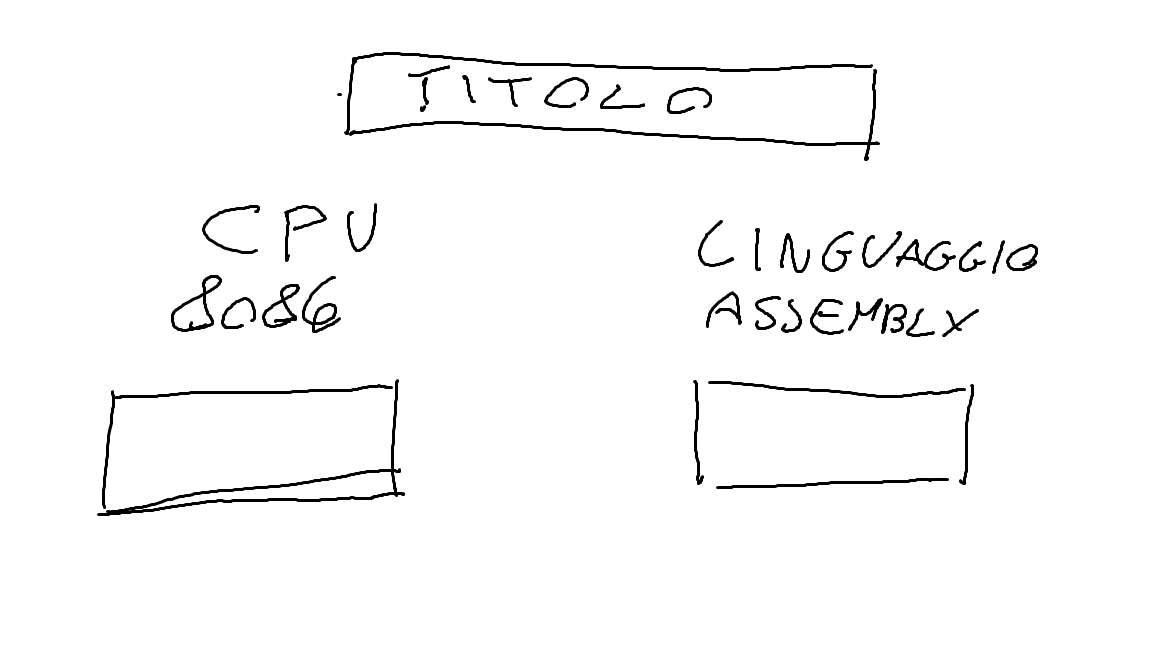 TITOLO
CPU
8086
LINGUAGGIO
ASSEMBLY